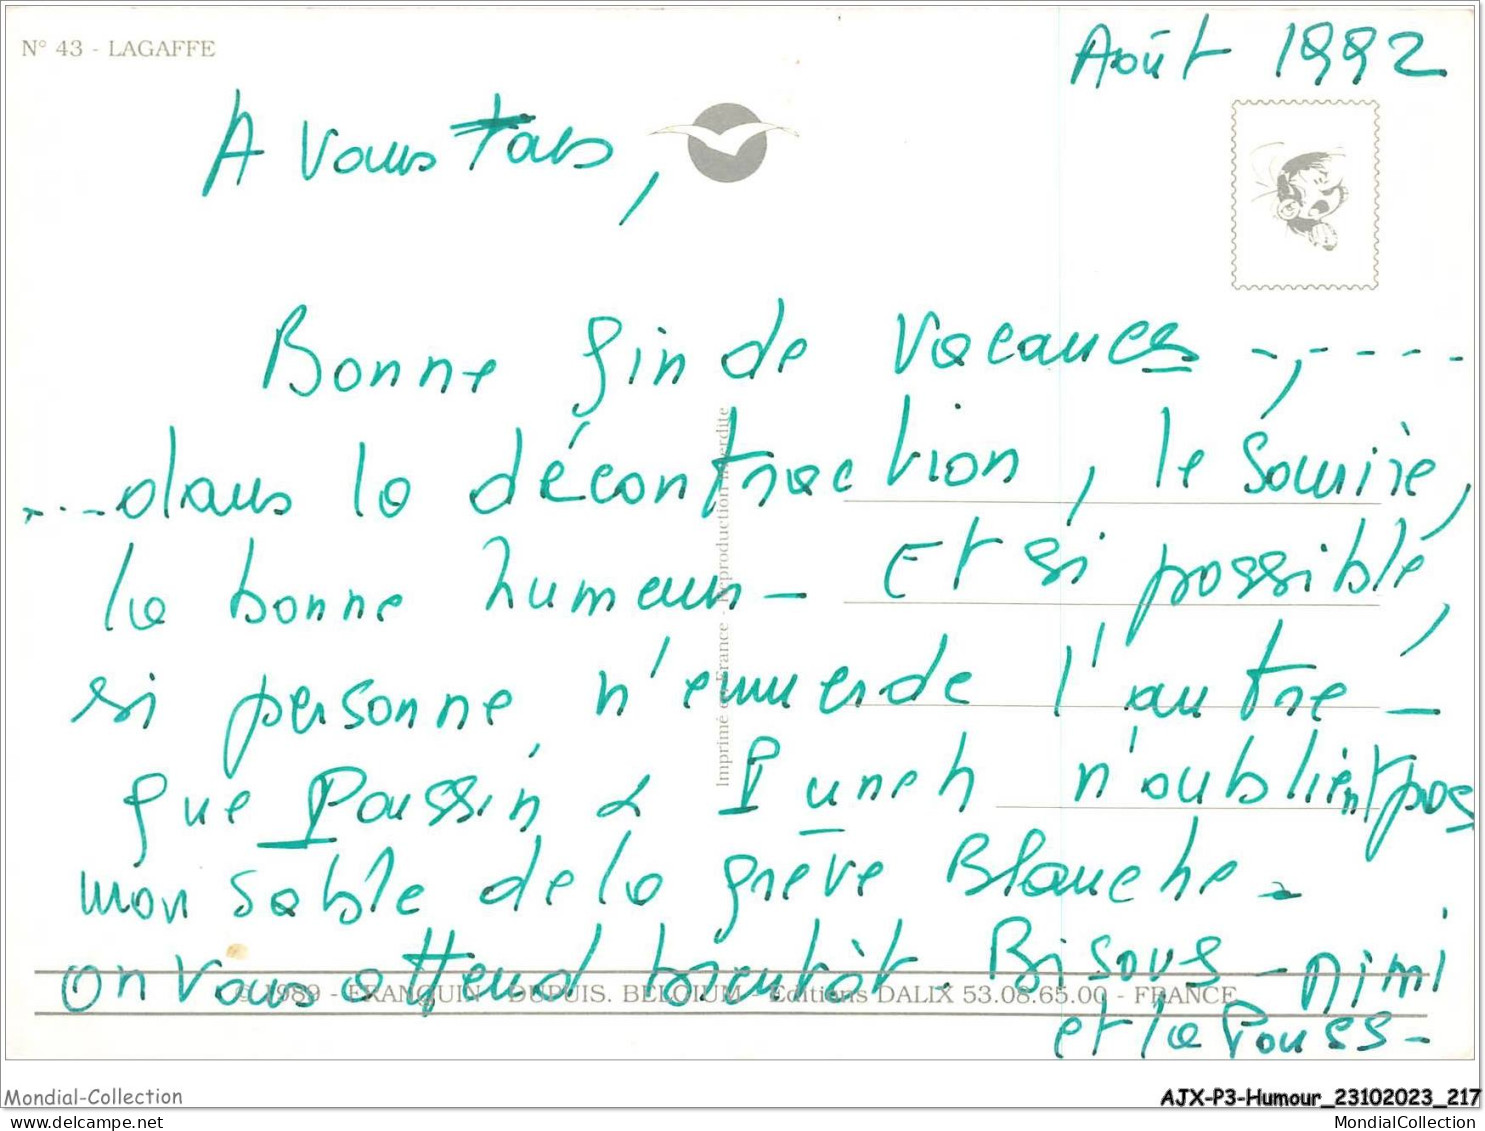 N° 43 - LAGAFFE
Août 1992
A vous tous,
Bonne fin de vacances - , - - - -
... dans la décontraction, le sourire,
la bonne humeur - Et si possible,
si personne n'emmerde l'autre -
que Poussin & Punch n'oublient pas
mon sable de la grève Blanche -
on vous attend bientôt. Bisous - Mimi
et la Pouss -
Imprimé en France - Reproduction interdite
© 1989 - FRANQUIN - DUPUIS. BELGIUM - Editions DALIX 53.08.65.00 - FRANCE
Mondial-Collection
AJX-P3-Humour_23102023_217
https://www.delcampe.net/fr/collections/store/MondialCollection
MondialCollection